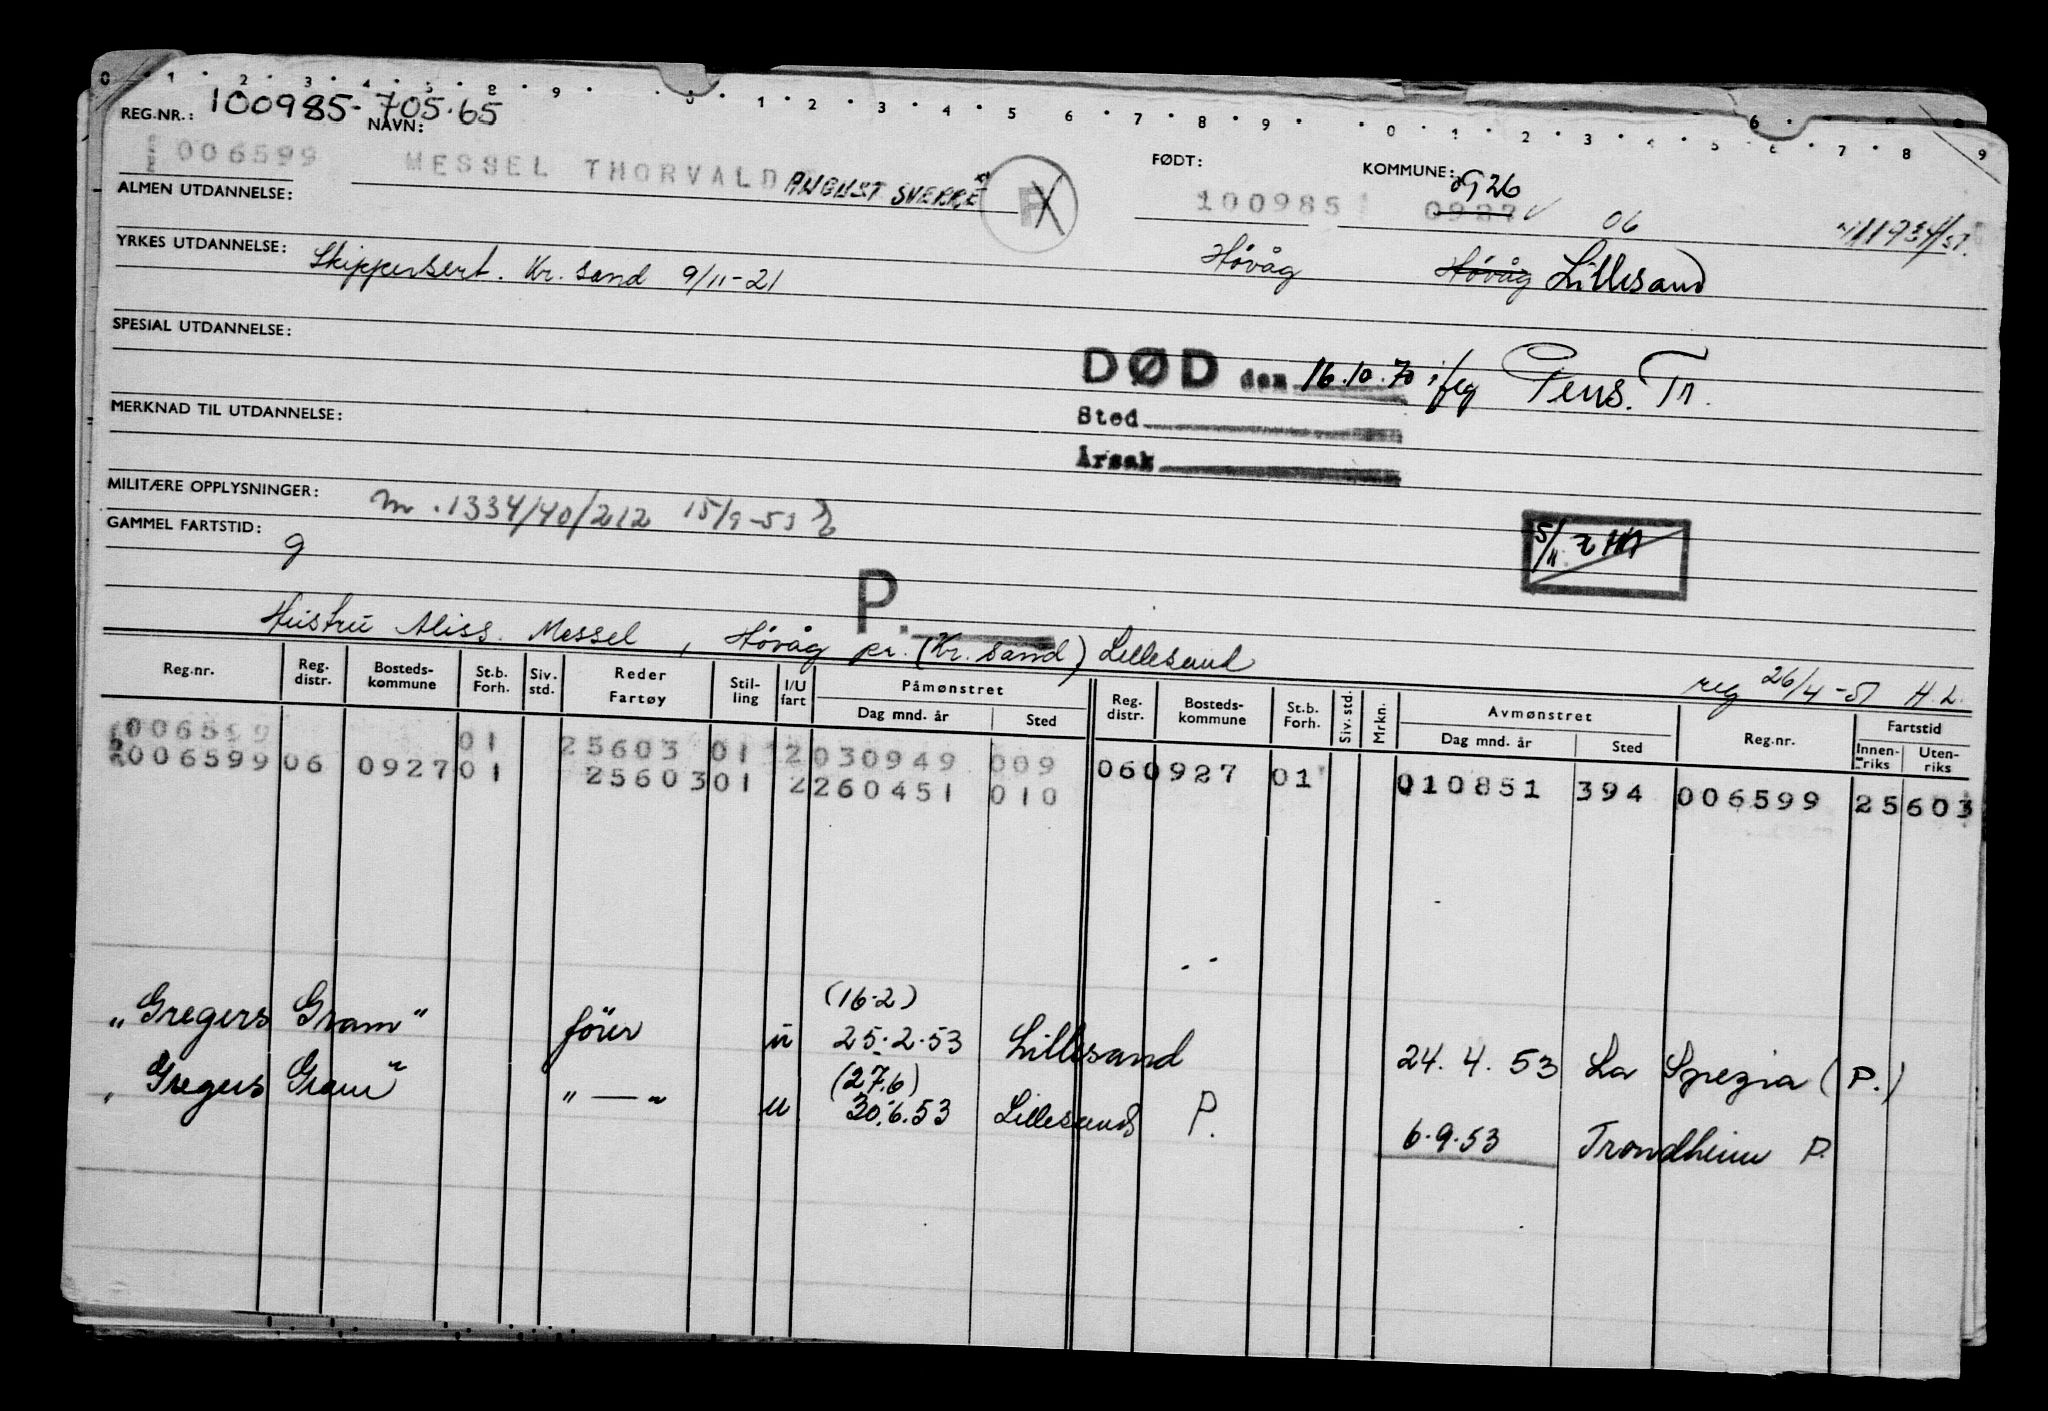 0 1 2 3 4 5 8 9 0 1 2 3 4 5 6 7 8 9 0 1 2 3 4 5 6 7 8 9
REG.NR.: 100985-705.65
NAVN:
006599 MESSEL THORVALD AUGUST SVERRE
FØDT: 100985
KOMMUNE: 0926 0927 06
ALMEN UTDANNELSE:
YRKES UTDANNELSE: Skippersert. Kr. sand 9/11-21 Høvåg Høvåg Lillesand
SPESIAL UTDANNELSE:
DØD den 16.10.70 Pens. Tr.
Sted
MERKNAD TIL UTDANNELSE:
Årsak
MILITÆRE OPPLYSNINGER: m.1334/40/212 15/9-53
GAMMEL FARTSTID: g
5/11
P.
Hustru Aliss. Messel, Høvåg pr. (Kr. sand) Lillesand
reg 26/4-51 H.L.
Reg.nr. Reg. distr. Bosteds-kommune St.b. Forh. Siv. std. Reder Fartøy Stil-ling I/U fart Påmønstret Dag mnd. år Sted Reg. distr. Bosteds-kommune St.b. Forh. Siv. std. Mrkn. Avmønstret Dag mnd. år Sted Reg.nr. Fartstid Innen-riks Uten-riks
006599 01 25603 01 2 030949 009
006599 06 0927 01 25603 01 2 260451 010 06 0927 01 010851 394 006599 25603
(16-2)
"Gregers Gram" fører u 25.2.53 Lillesand 24.4.53 La Spezia (P.)
(27.6)
"Gregers Gram" " — " u 30.6.53 Lillesand P. 6.9.53 Trondheim P.